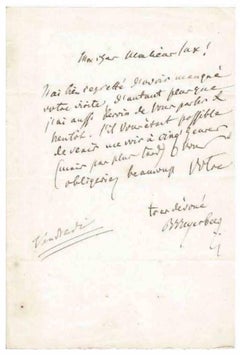 Mon cher Monsieur Sax!
J'ai très regretté d'avoir manqué
votre visite, d'autant plus que
j'ai aussi besoin de vous parler
bientôt. S'il vous était possible
de venir me voir à cinq heures
(mais pas plus tard)
obligeriez beaucoup Votre
très dévoué
Meyerbeer
Vendredi